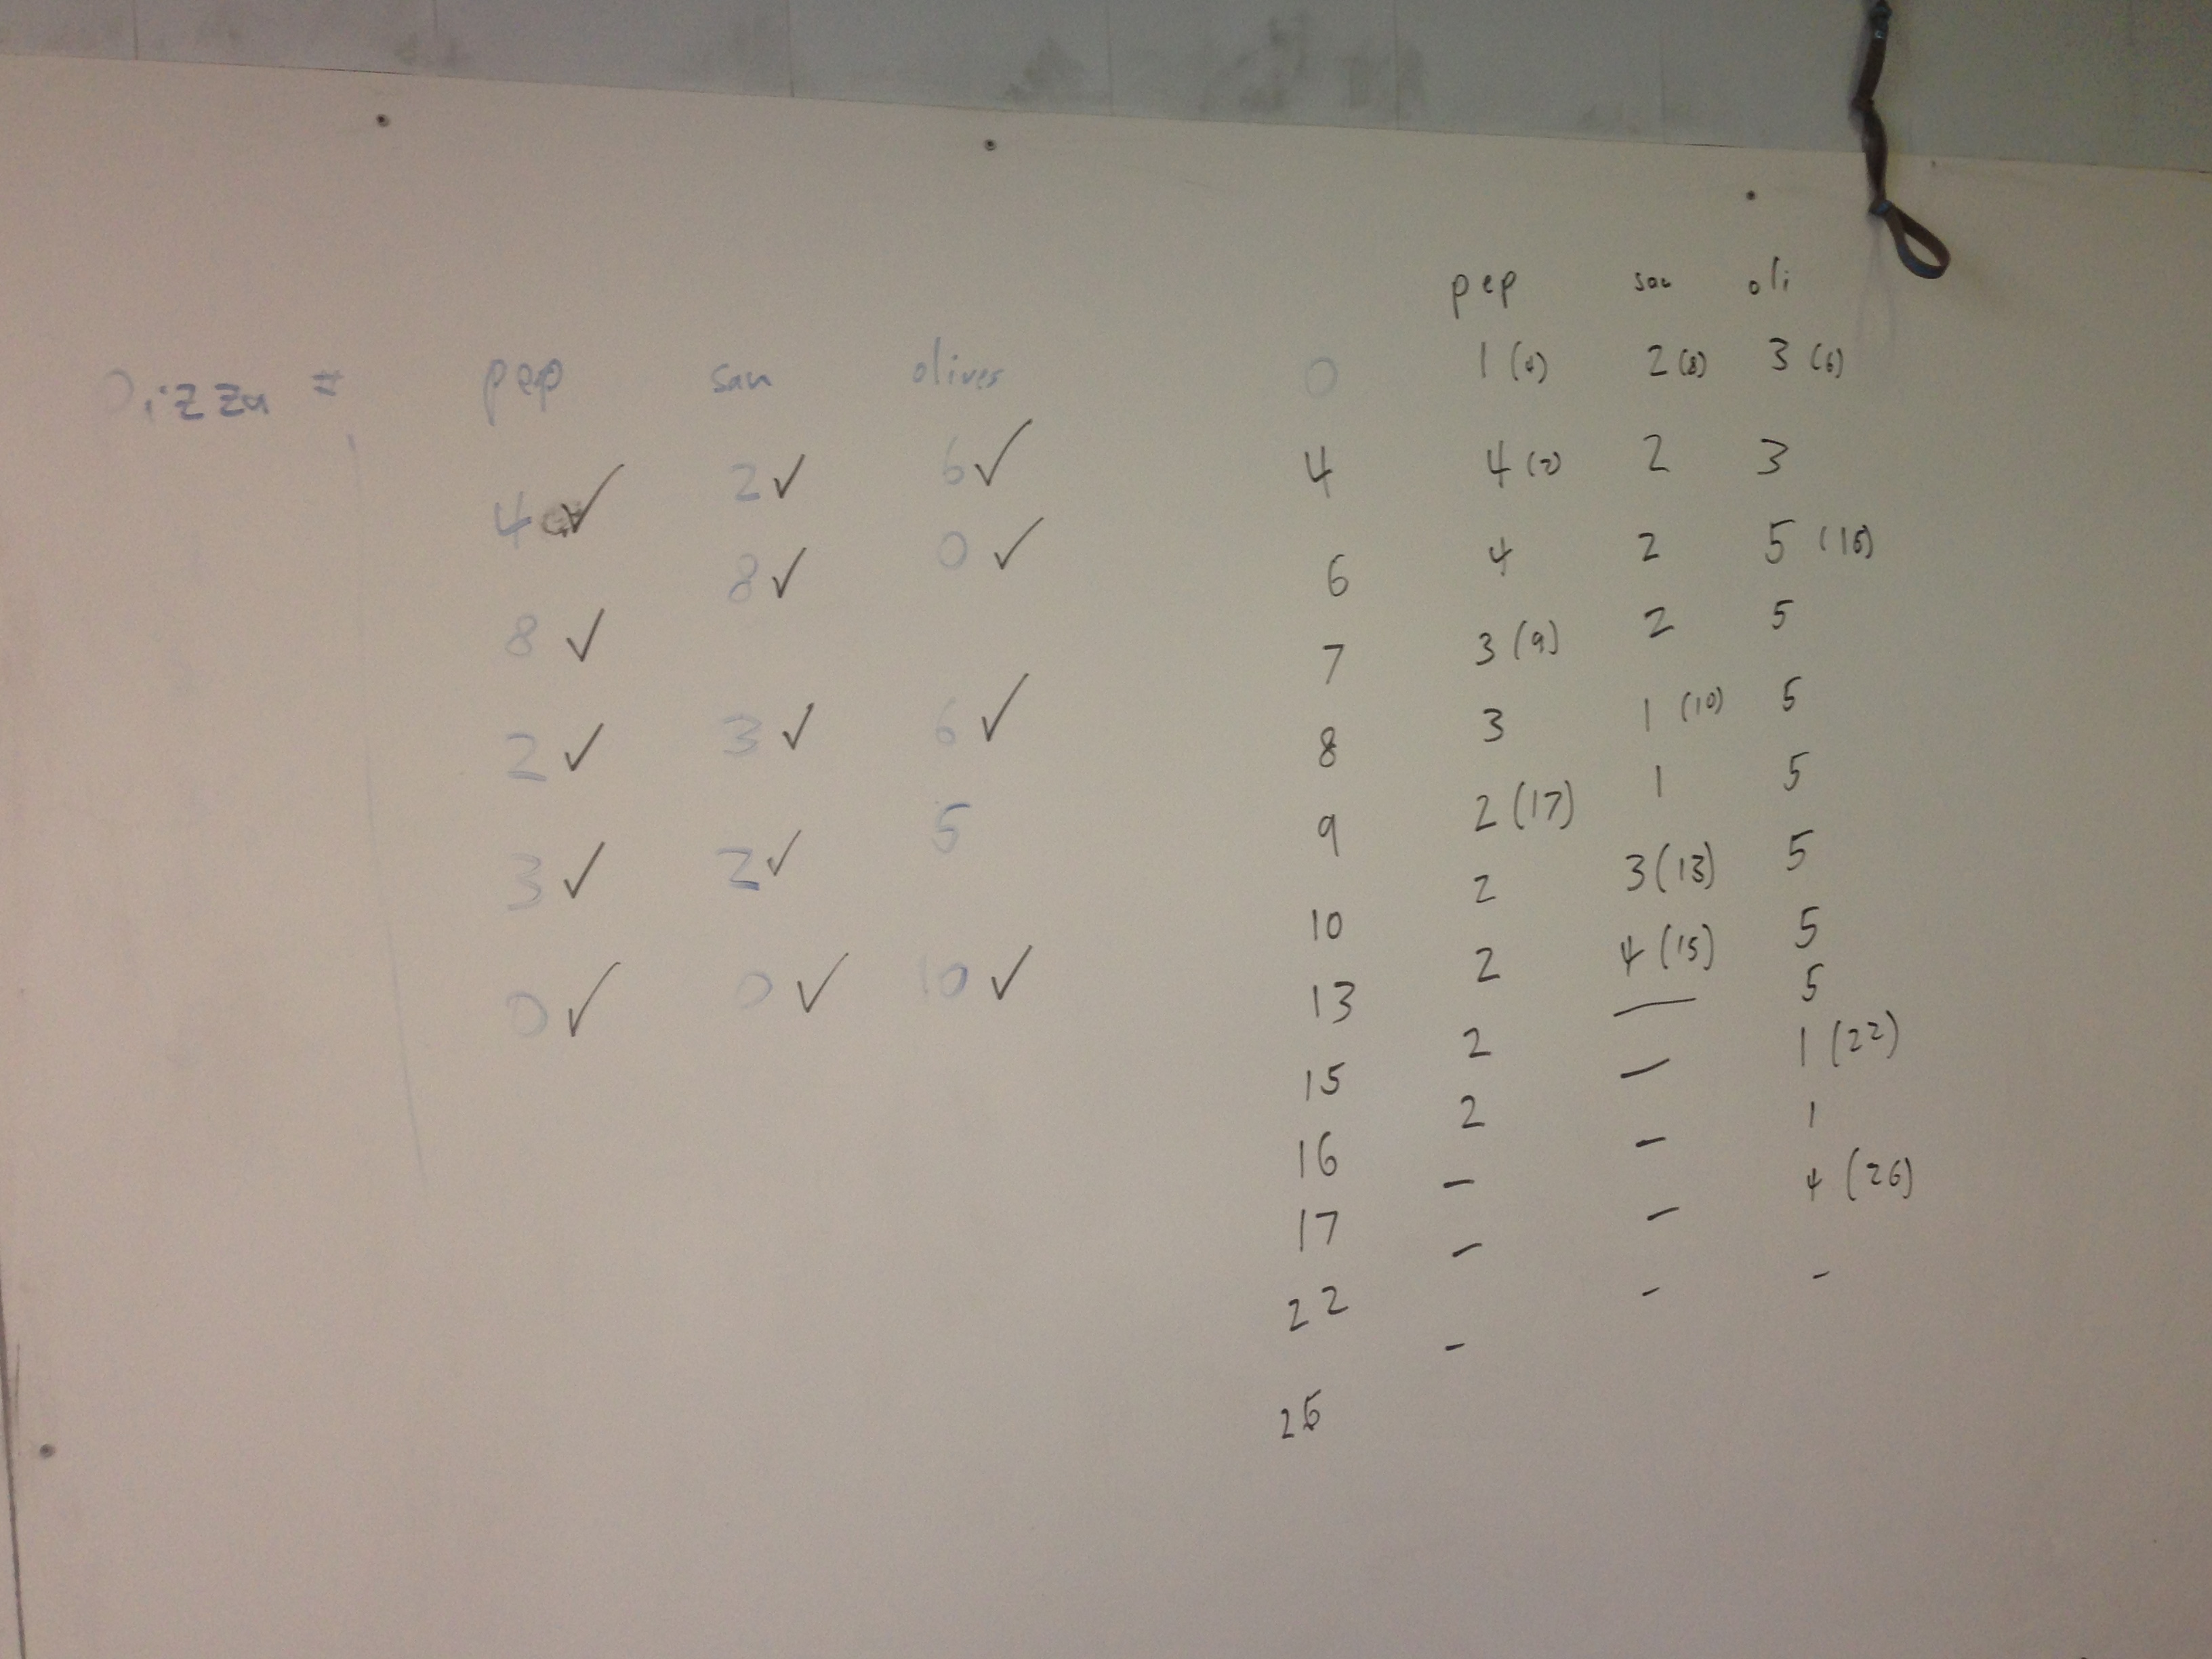 Pizza # pep sau olives
4 ✓ 2 ✓ 6 ✓
8 ✓ 8 ✓ 0 ✓
2 ✓ 3 ✓ 6 ✓
3 ✓ 2 ✓ 5
0 ✓ 0 ✓ 10 ✓
pep sau oli
0 1 (4) 2 (8) 3 (6)
4 4 (7) 2 3
6 4 2 5 (16)
7 3 (9) 2 5
8 3 1 (10) 5
9 2 (17) 1 5
10 2 3 (13) 5
13 2 4 (15) 5
15 2 — 5
16 2 — 1 (22)
17 — — 1
22 — — 4 (26)
26 — — —